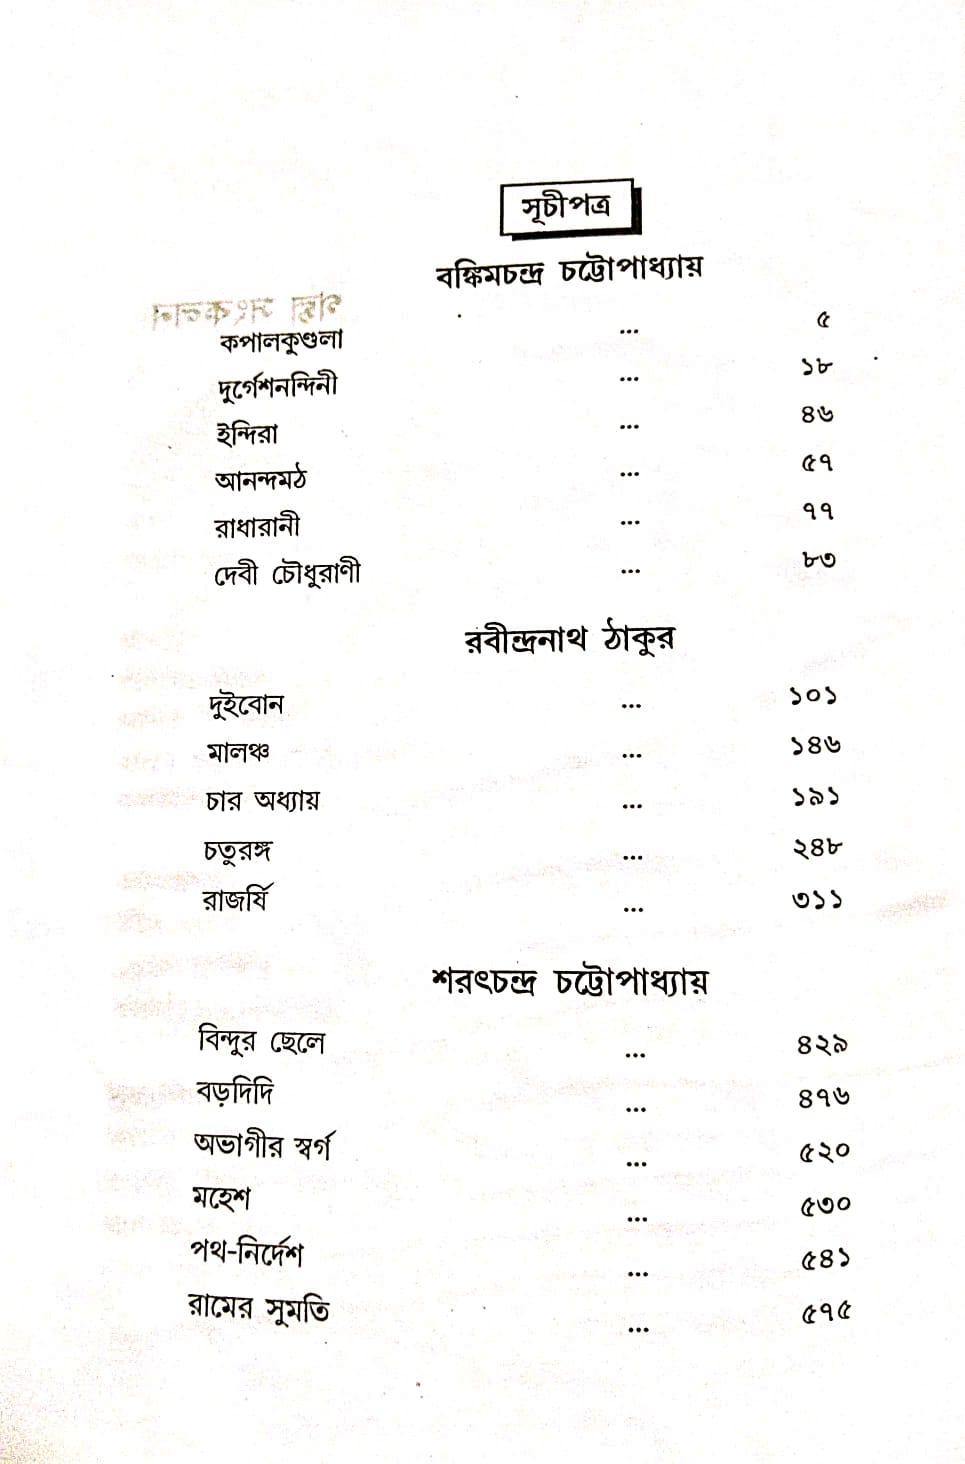 সূচীপত্র
বঙ্কিমচন্দ্র চট্টোপাধ্যায়
কপালকুণ্ডলা ... ৫
দুর্গেশনন্দিনী ... ১৮
ইন্দিরা ... ৪৬
আনন্দমঠ ... ৫৭
রাধারানী ... ৭৭
দেবী চৌধুরাণী ... ৮৩
রবীন্দ্রনাথ ঠাকুর
দুইবোন ... ১০১
মালঞ্চ ... ১৪৬
চার অধ্যায় ... ১৯১
চতুরঙ্গ ... ২৪৮
রাজর্ষি ... ৩১১
শরৎচন্দ্র চট্টোপাধ্যায়
বিন্দুর ছেলে ... ৪২৯
বড়দিদি ... ৪৭৬
অভাগীর স্বর্গ ... ৫২০
মহেশ ... ৫৩০
পথ-নির্দেশ ... ৫৪১
রামের সুমতি ... ৫৭৫